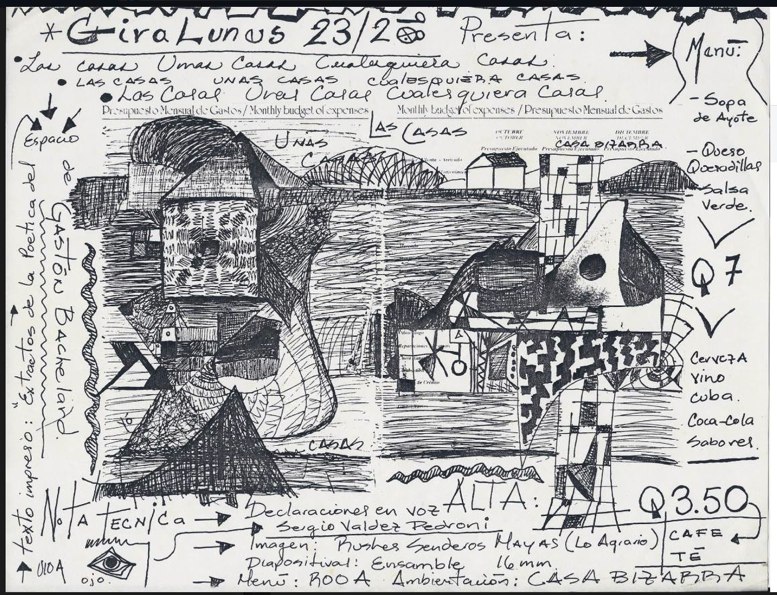 * Gira Lunas 23/2
Presenta:
Menú:
• Las casas Unas Casas Cualesquiera Casas.
• LAS CASAS UNAS CASAS CUALESQUIERA CASAS.
• Las Casas Unas Casas Cualesquiera Casas.
Presupuesto Mensual de Gastos / Monthly budget of expenses
Monthly budget of expenses / Presupuesto Mensual de Gastos
UNAS
CASAS
LAS CASAS
OCTUBRE
NOVIEMBRE
DICIEMBRE
CASA BIZARRA
CASAS
- Sopa
de Ayote
- Queso
Quesadillas
- Salsa
Verde.
Q7
Cerveza
vino
cuba.
Coca-cola
Sabores.
Q3.50
CAFE
TÉ
Texto impreso: "Extractos de la Poética del
Espacio
de Gastón Bachelard.
Nota TECNICA
Declaraciones en voz ALTA:
Sergio Valdez Pedroni
Imagen: Rushes Senderos Mayas (Lo Agrario)
Diapositiva: Ensamble 16 mm.
Menú: ROOA Ambientación: CASA BIZARRA
ojo.